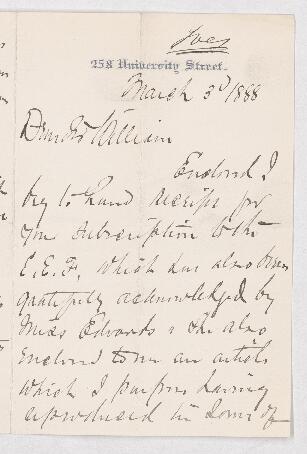 Ives
258 University Street.
March 3d 1888
Dear Sir William
Enclosed I
beg to hand receipt for
your subscription to the
E. E. F. which has also been
gratefully acknowledged by
Miss Edwards & she also
enclosed to me an article
which I purpose having
reproduced in some of